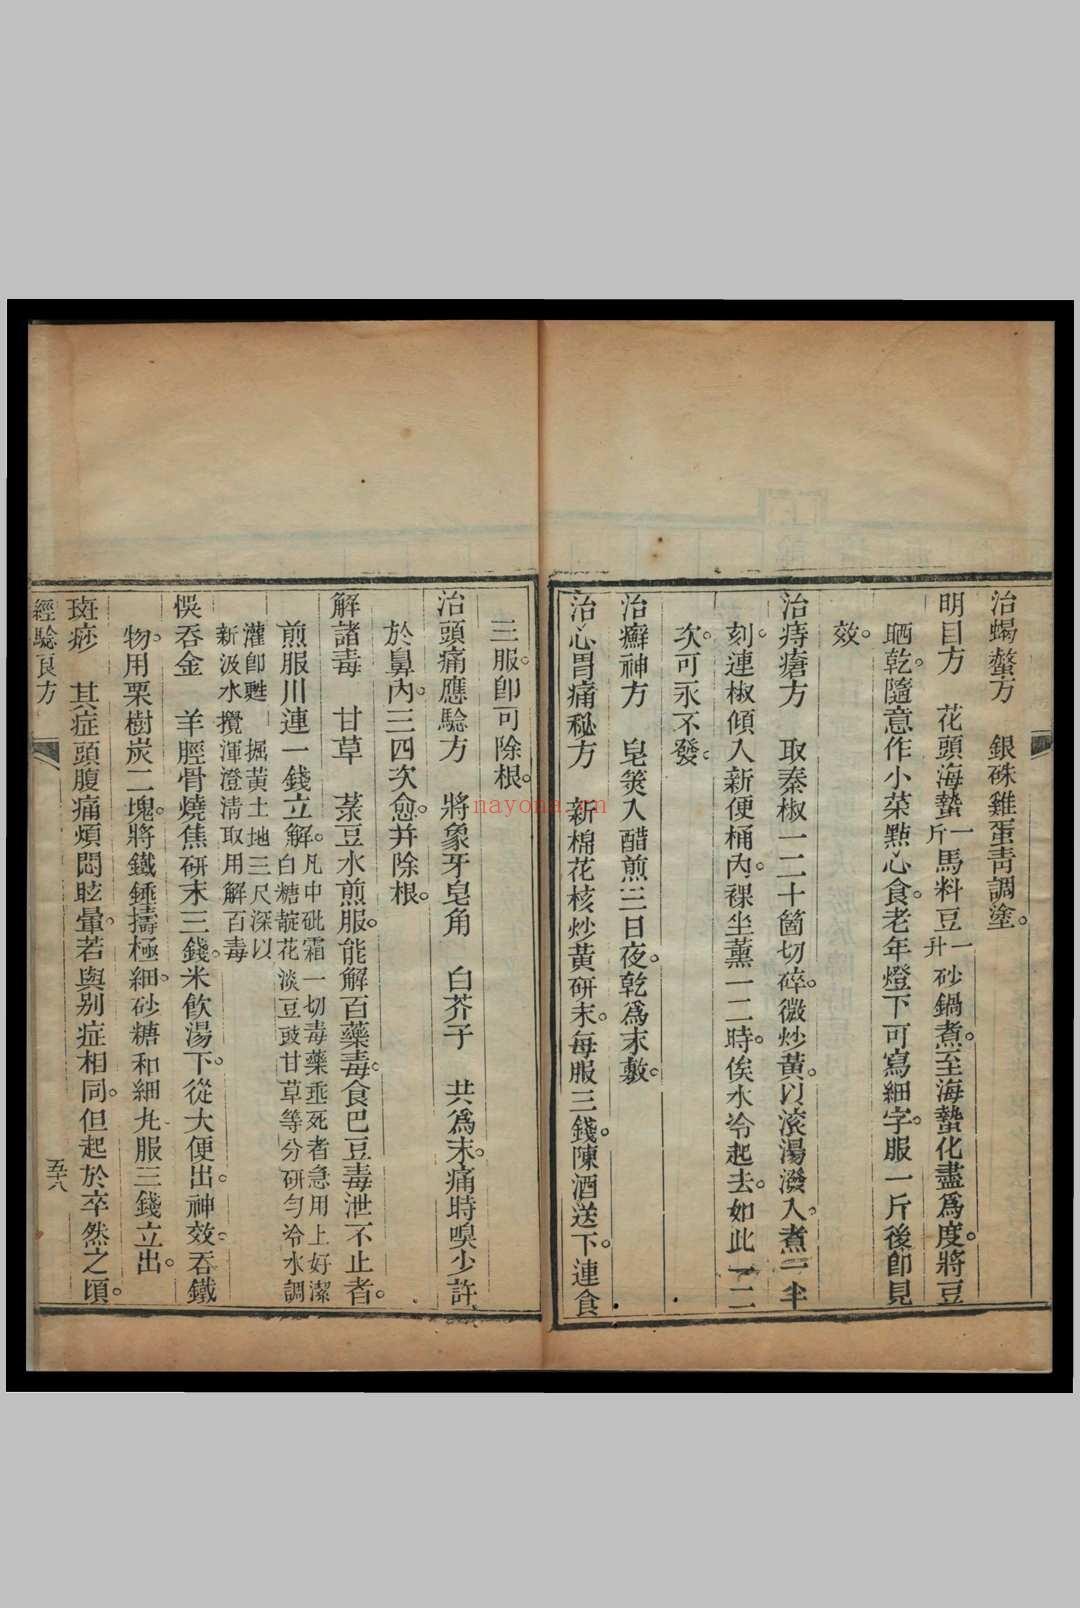 治蝎螫方　銀硃雞蛋青調塗。
明目方　花頭海蟄一斤馬料豆一升砂鍋煮。至海蟄化盡爲度。將豆
晒乾。隨意作小菜點心食。老年燈下可寫細字。服一斤後卽見
效。
治痔瘡方　取秦椒一二十箇切碎。微炒黃。以滚湯潑入。煮一半
刻。連椒傾入新便桶內。裸坐薰一二時。俟水冷起去。如此一二
次。可永不發。
治癬神方　皂筴入醋煎三日夜。乾爲末敷。
治心胃痛秘方　新棉花核炒黃研末。每服三錢。陳酒送下。連食
三服。卽可除根。
治頭痛應驗方　將象牙皂角　白芥子　共爲末。痛時嗅少許
於鼻內。三四次愈。并除根。
解諸毒　甘草　菉豆水煎服。能解百藥毒。食巴豆毒泄不止者。
煎服川連一錢立解。凡中砒霜一切毒藥垂死者急用上好潔
白糖靛花淡豆豉甘草等分研勻冷水調
灌卽甦　掘黃土地三尺深以
新汲水攪渾澄清取用解百毒
悞吞金　羊脛骨燒焦研末三錢。米飲湯下。從大便出。神效。吞鐵
物。用栗樹炭二塊。將鐵錘擣極細。砂糖和細丸服三錢立出。
斑痧　其症頭腹痛煩悶眩暈。若與别症相同。但起於卒然之頃。
經驗良方
五十八
nayona.cn